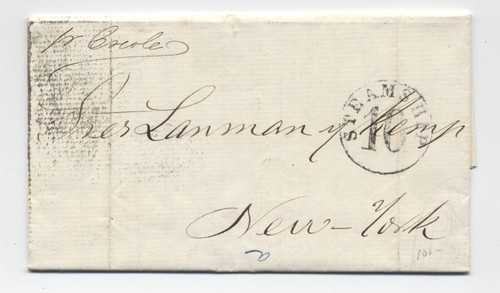 pr Creole
STEAMSHIP
10
Sres Lanman y Kemp
New-York
a
101-